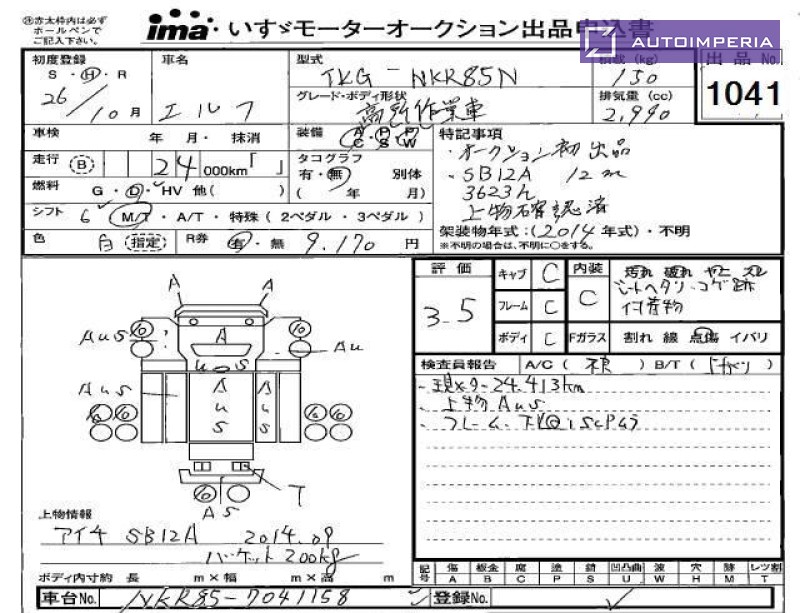 ㊟赤太枠内は必ず
ボールペンで
ご記入下さい。
ima・いすゞモーターオークション出品申込書
AUTOIMPERIA
初度登録
S・H・R
26/10月
車名
エルフ
型式
TKG-NKR85N
グレード・ボディ形状
高所作業車
積載 (kg)
150
排気量 (cc)
2,990
出品 No.
1041
車検 年 月・ 抹消
装備
A・P・P
C・S・W
走行 (B) 24 000km「 」
タコグラフ
有・無 別体
( 年 月)
燃料 G・D・HV 他( )
シフト 6 M/T・A/T・特殊(2ペダル・3ペダル)
色 白 (指定) R券 有・無 9,170 円
特記事項
・オークション初出品
・SB12A 12m
3623h
上物確認済
架装物年式:(2014年式)・不明
※不明の場合は、不明に○をする。
評価
3.5
キャブ C
フレーム C
ボディ C
内装
C
汚れ 破れ ヤケ スレ
シートヘタリ・コゲ跡
付着物
Fガラス 割れ 線 点傷 イバリ
検査員報告 A/C( ) B/T( )
・現メーター24,413km
・上物AUS
A
A
A
AUS
AU
U S
AUS
A
U
S
A
U
S
T
AS
上物情報
アイチ SB12A 2014.09
バケット200kg
ボディ内寸約 長 m×幅 m×高 m
記号
傷 A
板金 B
腐 C
塗 P
錆 S
凹凸曲 U
波 W
穴 H
跡 M
レンズ割 T
車台No. NKR85-7041158
登録No.